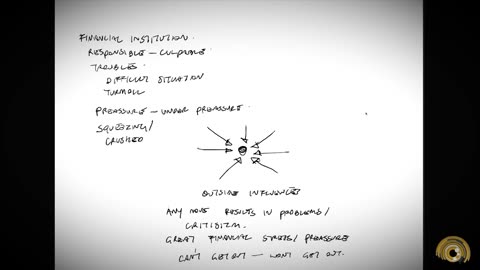 FINANCIAL INSTITUTION.
RESPONSIBLE – CULPABLE.
TROUBLES.
DIFFICULT SITUATION
TURMOIL
PREASSURE – UNDER PREASSURE.
SQUEEZING/
CRUSHED
OUTSIDE INFLUENCES
ANY MOVE RESULTS IN PROBLEMS/
CRITISIZM.
GREAT FINANCIAL STRESS/PREASSURE
CAN'T GET OUT – WON'T GET OUT.